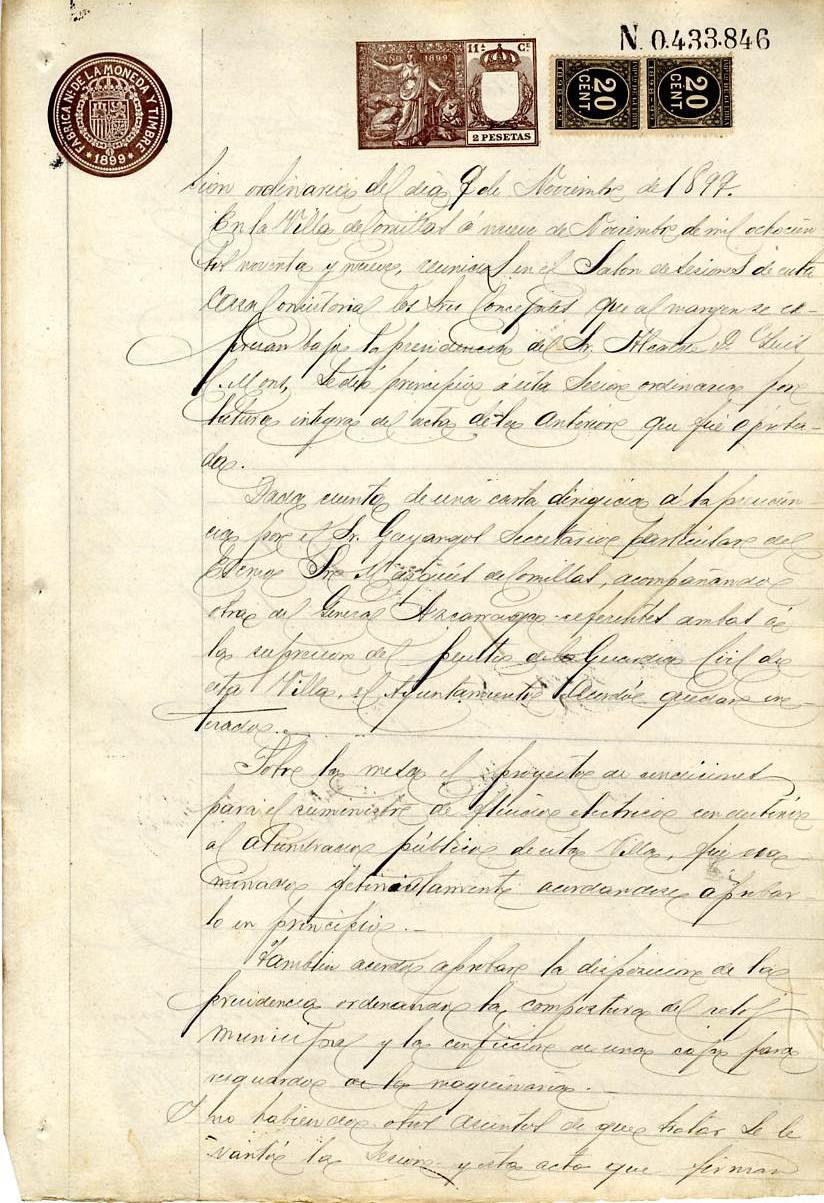 N. 0.433.846
FABRICA NL. DE LA MONEDA Y TIMBRE
* 1899 *
AÑO 1899
11ª Cª
2 PESETAS
20 CENT.
1898-99
20 CENT.
1898-99
sion ordinaria del dia 9 de Noviembre de 1899.
En la Villa de Comillas á nueve de Noviembre de mil ochocien
tos noventa y nueve, reunidos en el Salon de Sesiones de esta
Casa Consistorial los Sres Concejales que al margen se ex-
presan bajo la presidencia del Sr. Alcalde D. Luis
Mons, se dió principio á esta Sesion ordinaria por
lectura integra del acta de la anterior que fué aproba-
da.
Dada cuenta de una carta dirigida á la presiden
cia por el Sr. Gayangos Secretario particular del
Excmo Sr. Marqués de Comillas, acompañando
otra del General Azcarraga referentes ambas á
la supresion del puesto de la Guardia Civil de
esta Villa, el Ayuntamiento acordó quedar en
terado.
Sobre la mesa el proyecto de condiciones
para el suministro de fluido electrico con destino
al alumbrado público de esta Villa, fué exa
minado detenidamente acordandose aprobar-
lo en principio.
Tambien acordó aprobar la disposicion de la
presidencia ordenando la compostura del reloj
municipal y la confeccion de una caja para
resguardo de la maquinaria.
Y no habiendo otros asuntos de que tratar se le
vantó la Sesion y esta acta que firman